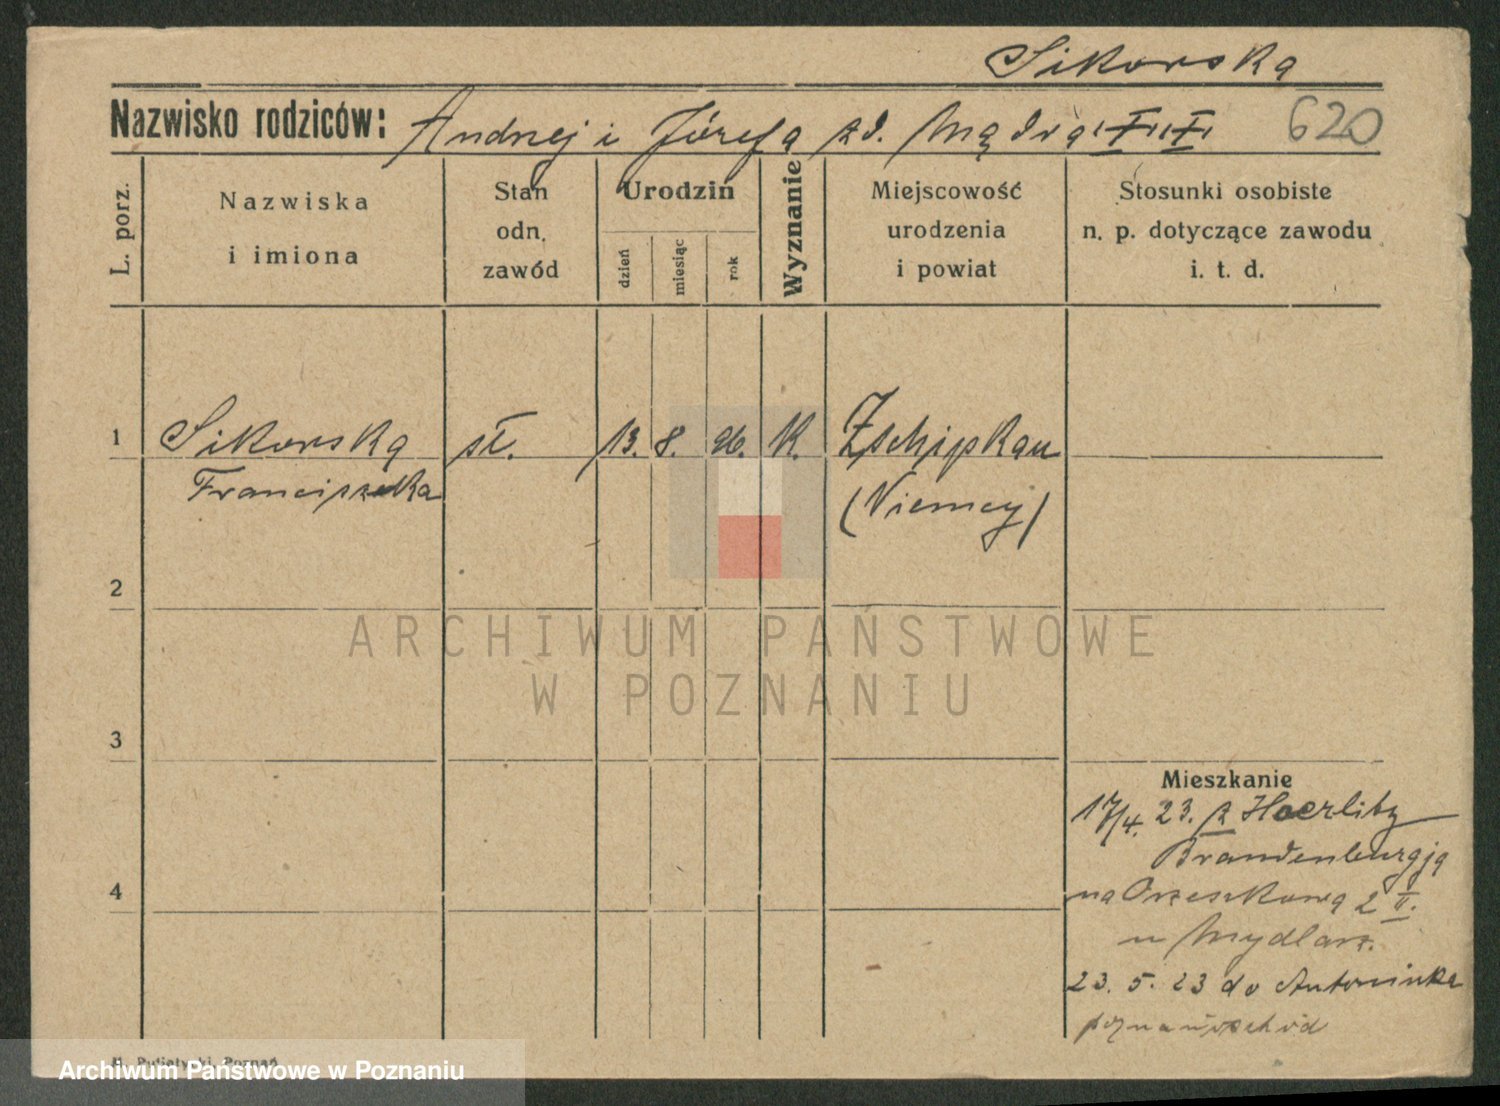 Sikorska
Nazwisko rodziców: Andrzej i Józefa zd. Mądra 620
L. porz.
Nazwiska
i imiona
Stan
odn.
zawód
Urodzin
dzień
miesiąc
rok
Wyznanie
Miejscowość
urodzenia
i powiat
Stosunki osobiste
n. p. dotyczące zawodu
i. t. d.
1 Sikorska sł. 13. 8. 96. K. Zschipkau
Franciszka (Niemcy)
2
3
4
Mieszkanie
17/4. 23. z Hoerlitz
Brandenburgja
na Orzeszkowa 2 II.
u Mydlarz.
23. 5. 23 do Antoninka
poznań wschód
Poznań
ARCHIWUM PAŃSTWOWE
W POZNANIU
Archiwum Państwowe w Poznaniu